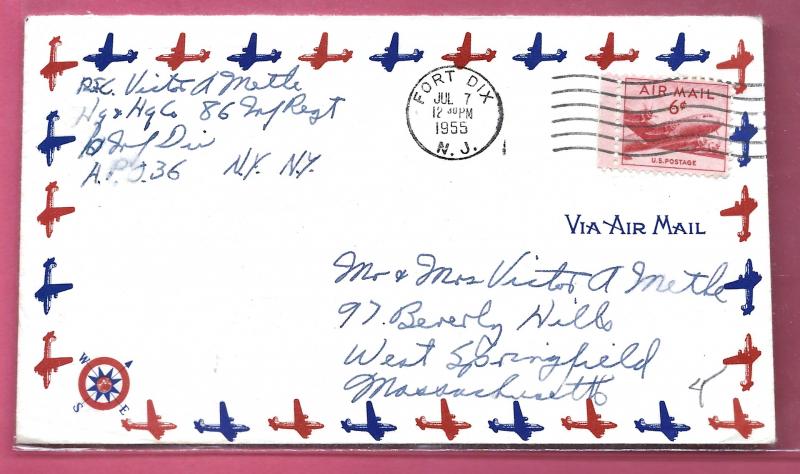 Pvc. Victor A Metle
Hq & Hq Co 86 Inf Regt
10 Inf Div
A.P.O. 36 N.Y. N.Y.
FORT DIX
JUL 7
12 30 PM
1955
N. J.
1
AIR MAIL
6¢
U.S. POSTAGE
VIA AIR MAIL
Mr & Mrs Victor A Metle
97 Beverly Hills
West Springfield
Massachusetts
4
W
S E